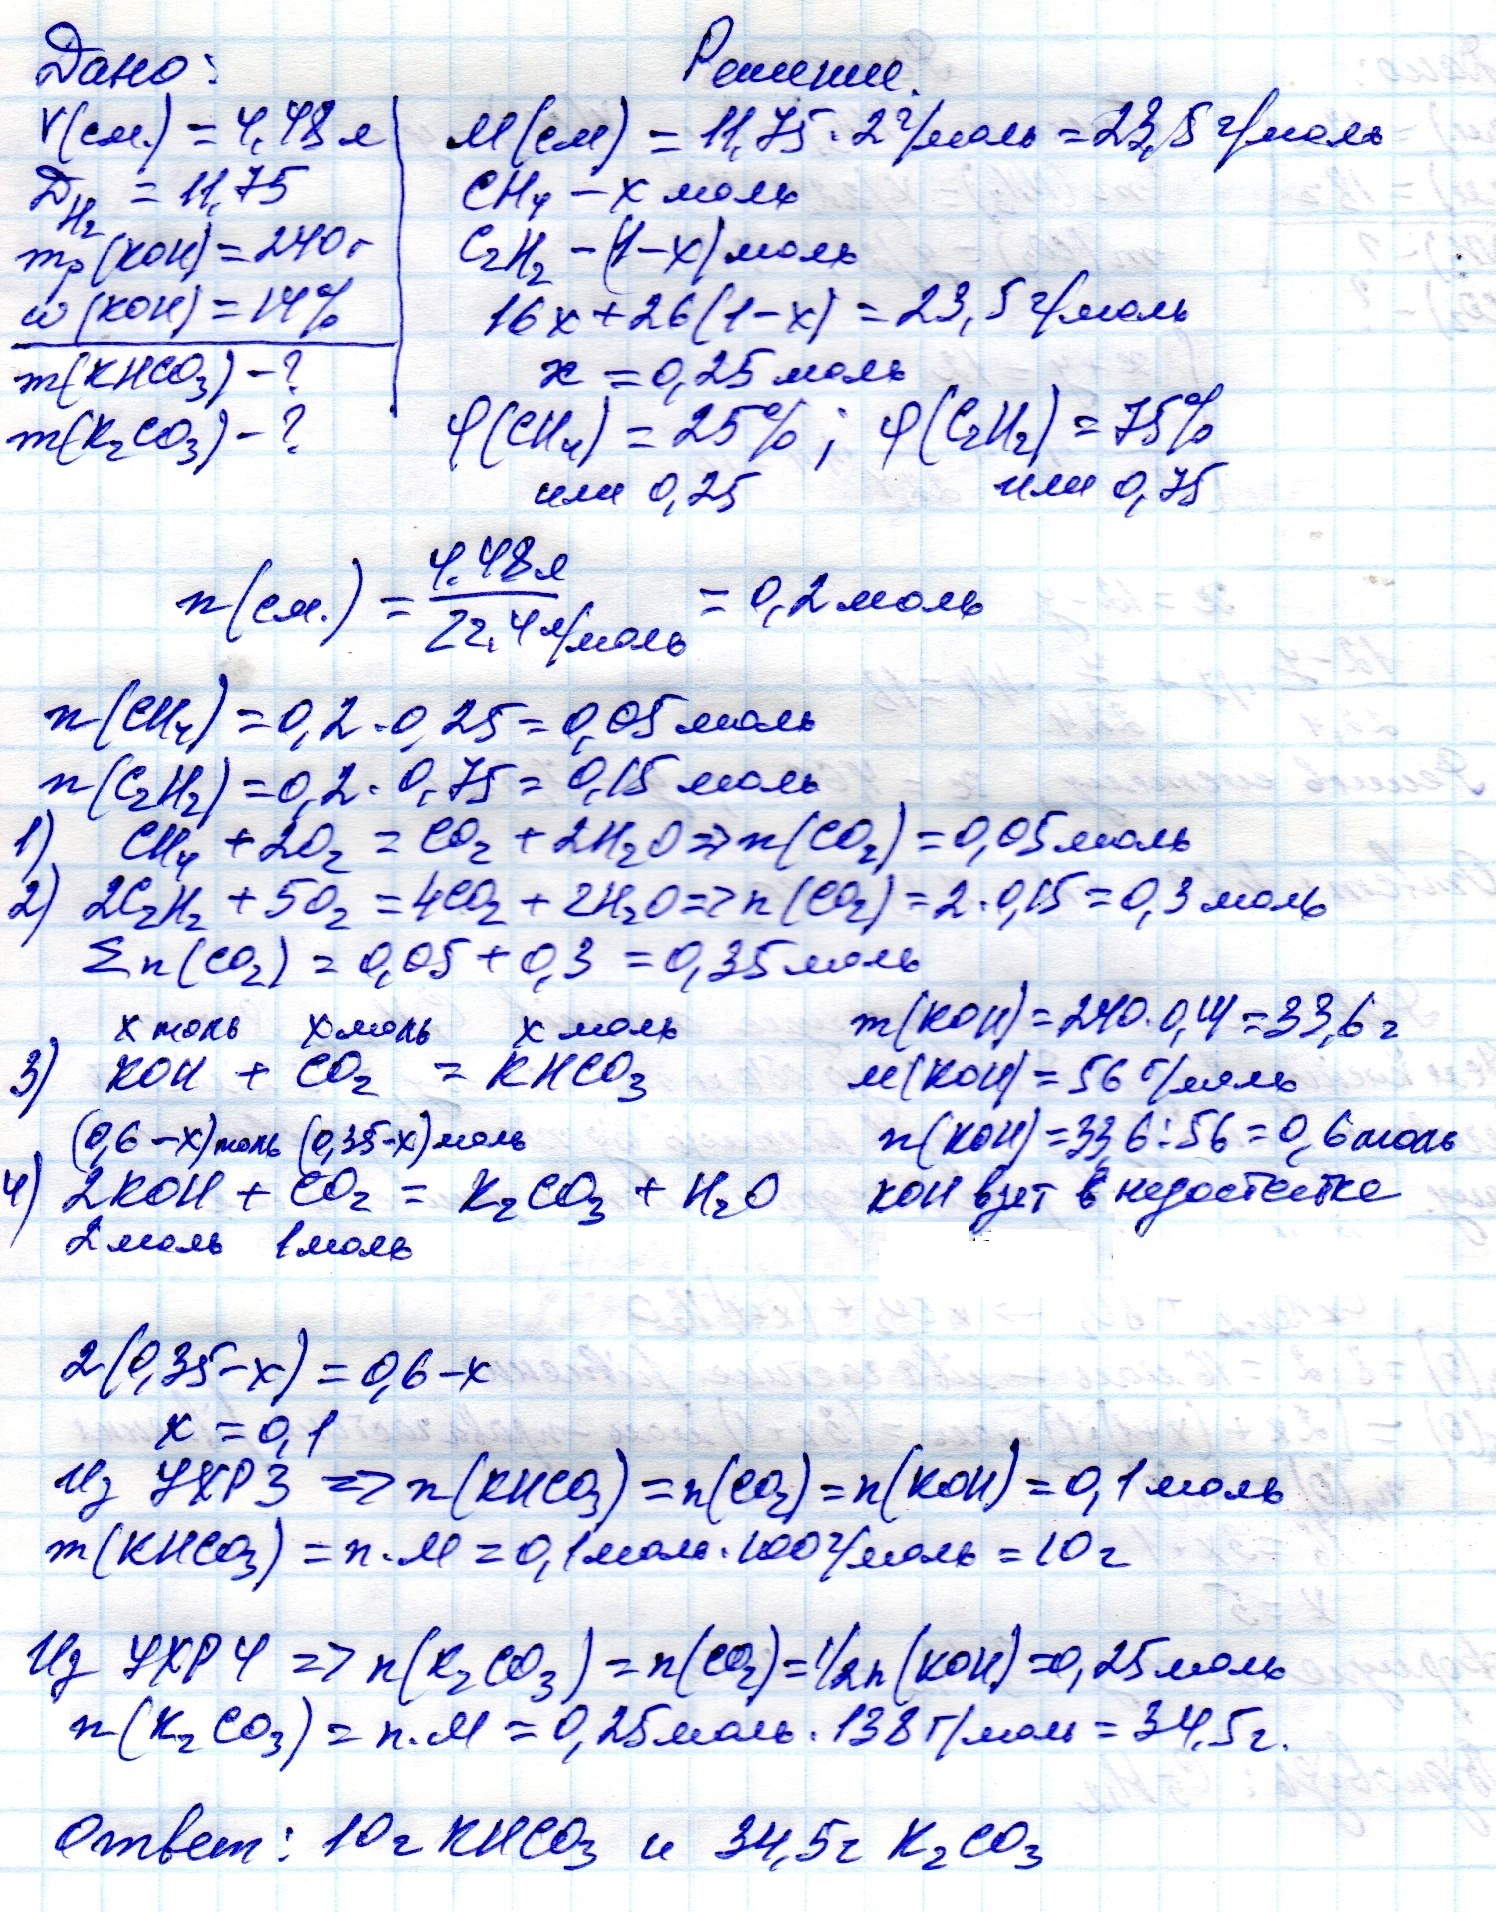 Дано:
V(см.) = 4,48 л
D H₂ = 11,75
mр(KOH) = 240 г
ω(KOH) = 14%
m(KHCO₃) - ?
m(K₂CO₃) - ?
Решение.
M(см) = 11,75 · 2 г/моль = 23,5 г/моль
CH₄ – x моль
C₂H₂ – (1–x) моль
16x + 26(1–x) = 23,5 г/моль
x = 0,25 моль
φ(CH₄) = 25% ; φ(C₂H₂) = 75%
или 0,25 или 0,75
n(см.) = 4.48 л / 22,4 л/моль = 0,2 моль
n(CH₄) = 0,2 · 0,25 = 0,05 моль
n(C₂H₂) = 0,2 · 0,75 = 0,15 моль
1) CH₄ + 2O₂ = CO₂ + 2H₂O => n(CO₂) = 0,05 моль
2) 2C₂H₂ + 5O₂ = 4CO₂ + 2H₂O => n(CO₂) = 2 · 0,15 = 0,3 моль
Σn(CO₂) = 0,05 + 0,3 = 0,35 моль
x моль x моль x моль
3) KOH + CO₂ = KHCO₃
(0,6 – x) моль (0,35 – x) моль
4) 2KOH + CO₂ = K₂CO₃ + H₂O
2 моль 1 моль
m(KOH) = 240 · 0,14 = 33,6 г
M(KOH) = 56 г/моль
n(KOH) = 33,6 : 56 = 0,6 моль
KOH взят в недостатке
2(0,35 – x) = 0,6 – x
x = 0,1
Из УХР 3 => n(KHCO₃) = n(CO₂) = n(KOH) = 0,1 моль
m(KHCO₃) = n · M = 0,1 моль · 100 г/моль = 10 г
Из УХР 4 => n(K₂CO₃) = n(CO₂) = 1/2 n(KOH) = 0,25 моль
n(K₂CO₃) = n · M = 0,25 моль · 138 г/моль = 34,5 г.
Ответ: 10 г KHCO₃ и 34,5 г K₂CO₃